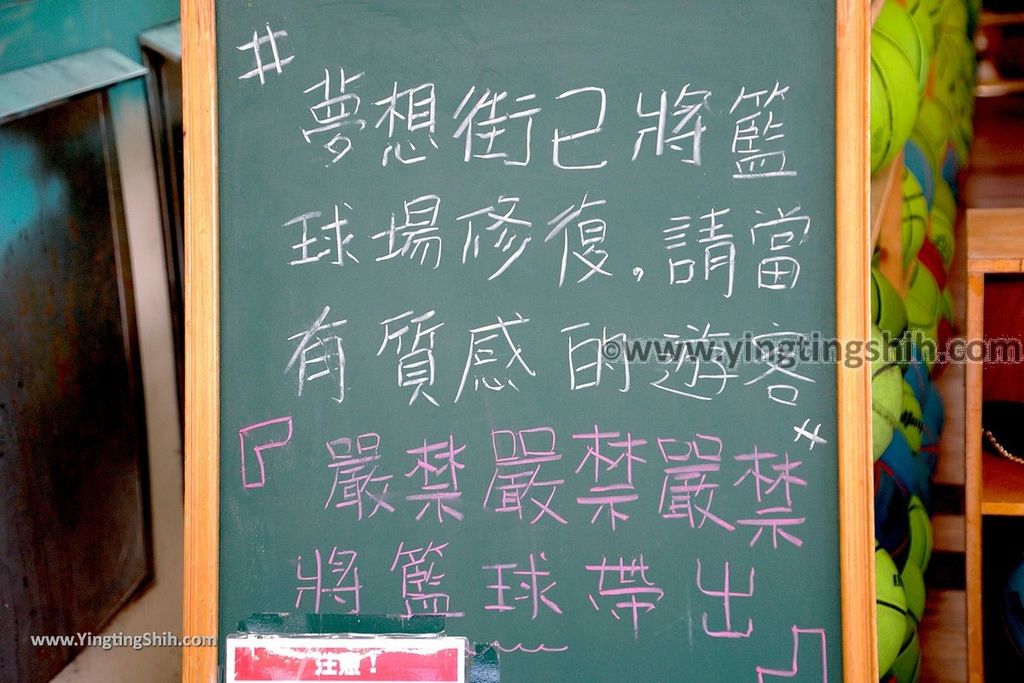 #
夢想街已將籃
球場修復,請當
有質感的遊客
#
『嚴禁嚴禁嚴禁
將籃球帶出
』
注意!
©www.yingtingshih.com
www.YingtingShih.com